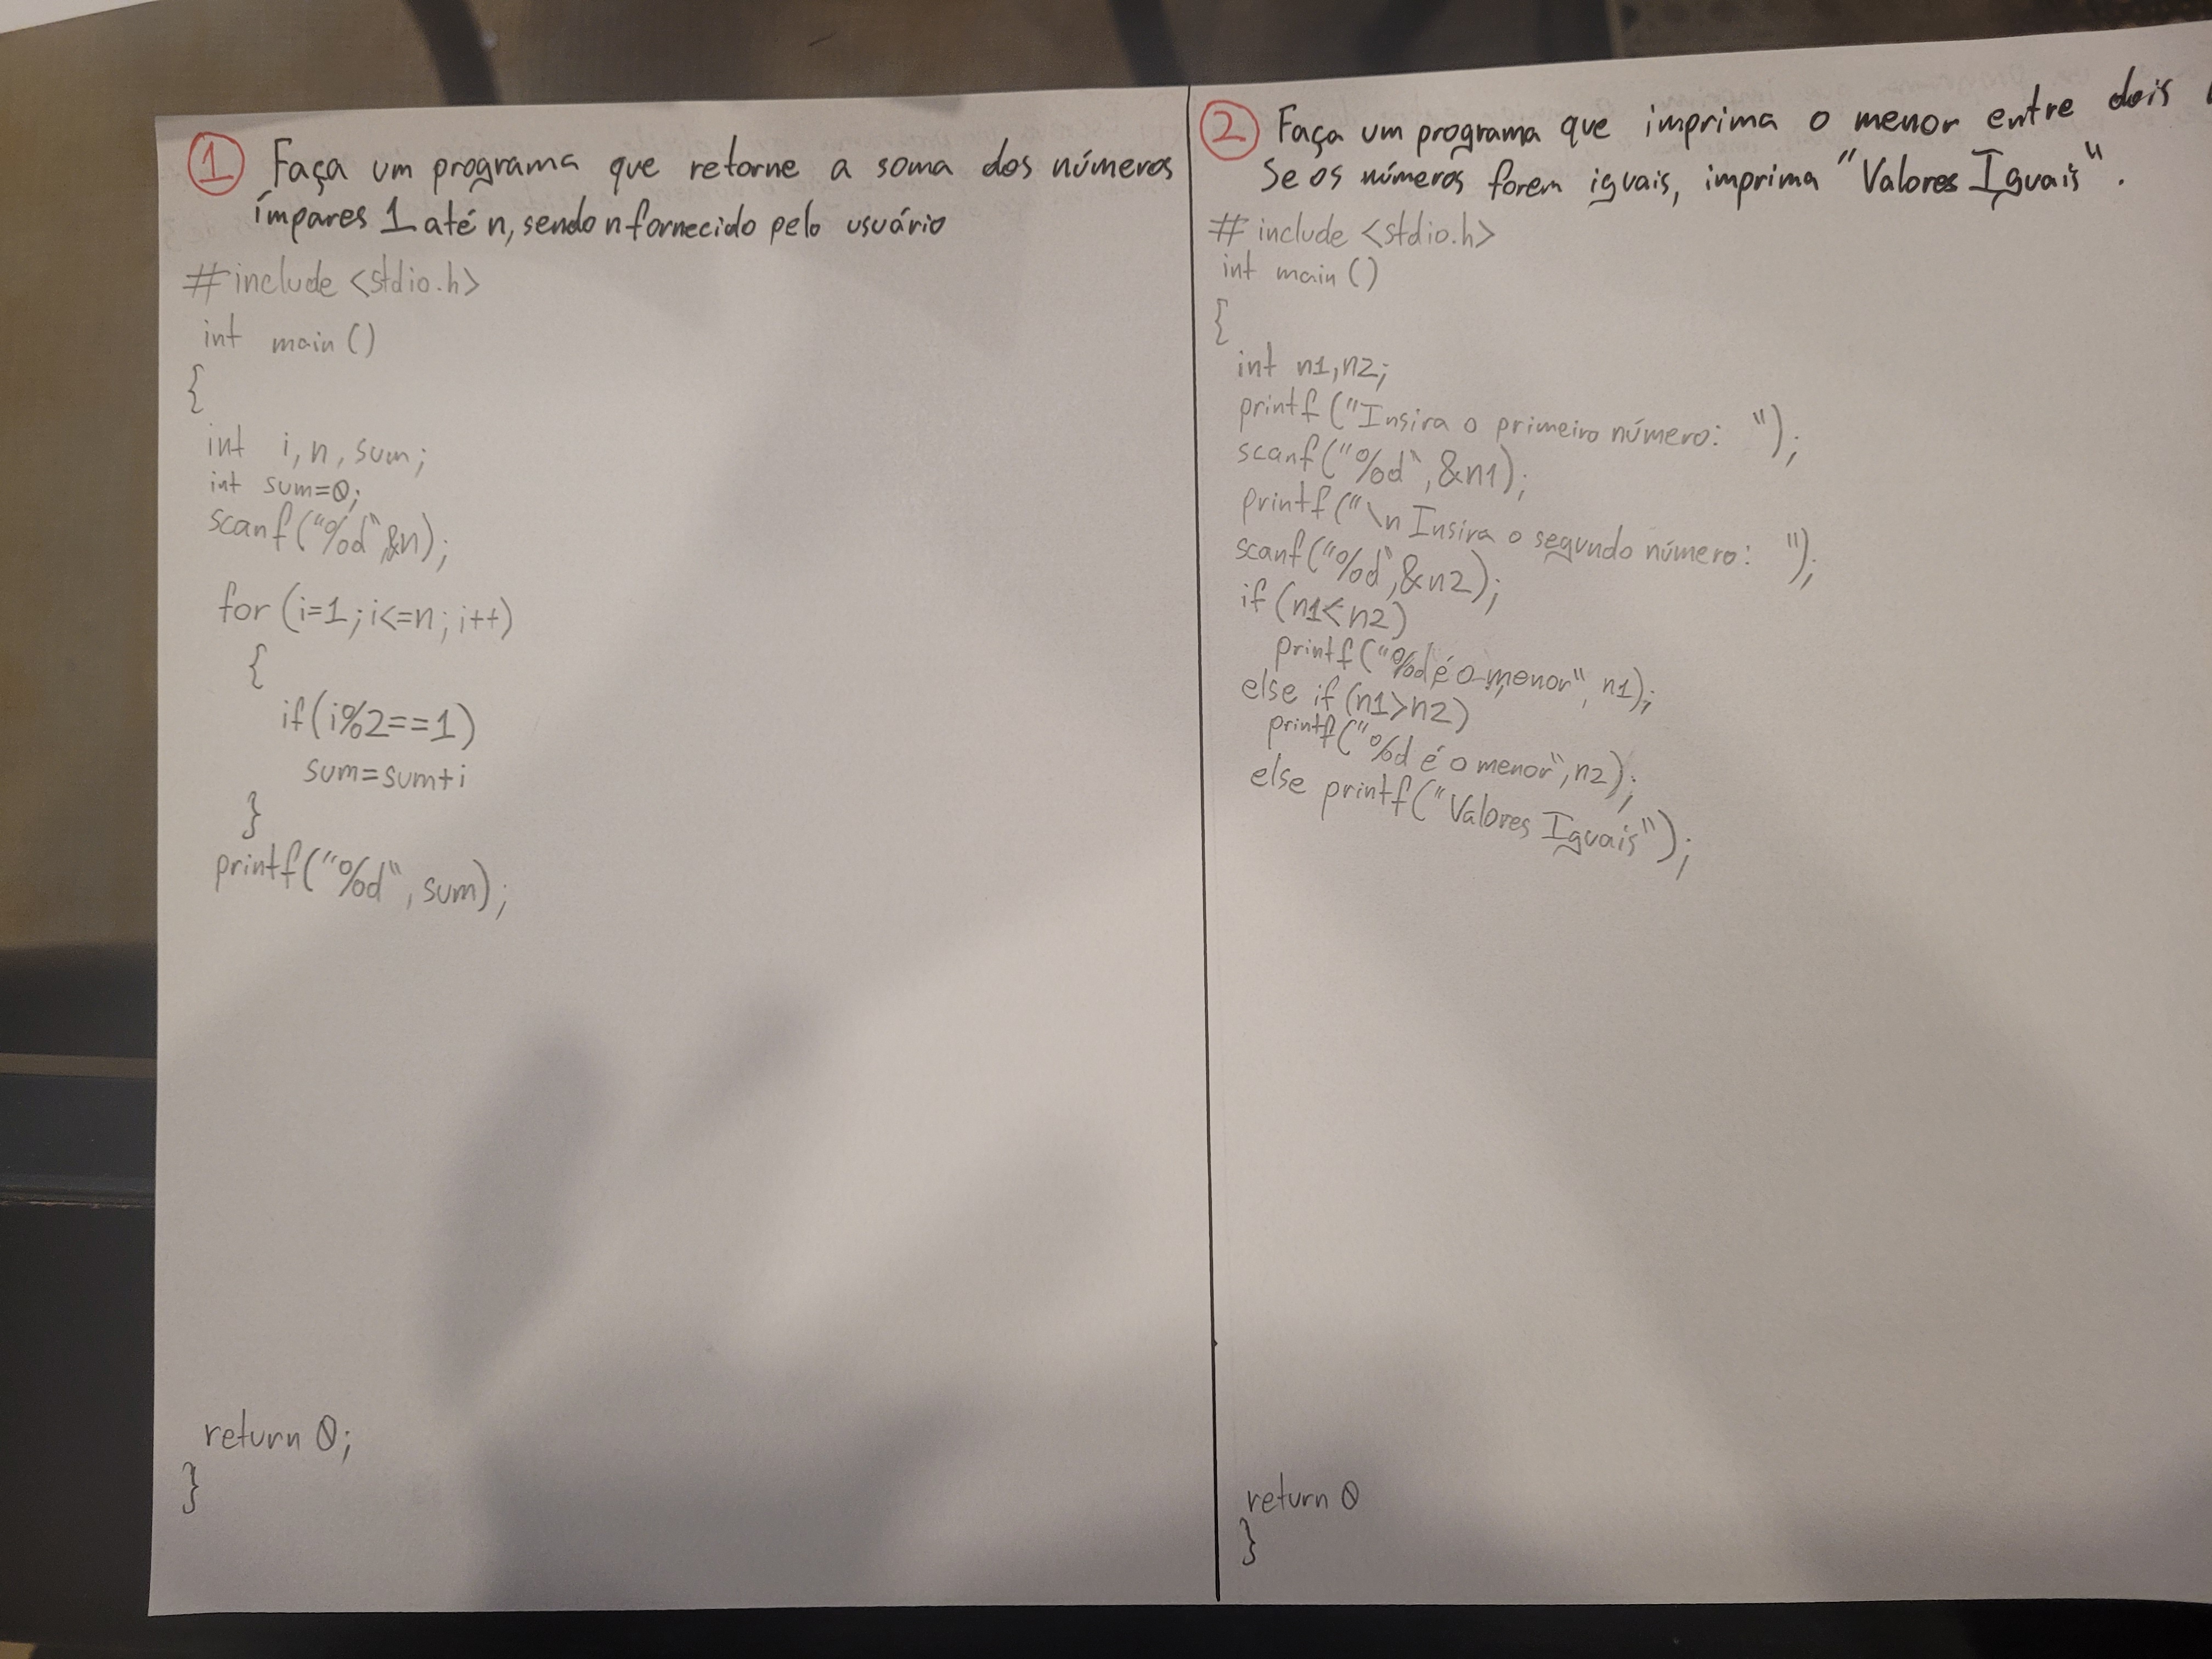 1 Faça um programa que retorne a soma dos números
ímpares 1 até n, sendo n fornecido pelo usuário
#include <stdio.h>
int main ()
{
int i, n, sum;
int sum=0;
scanf("%d" &n);
for (i=1; i<=n; i++)
{
if (i%2==1)
sum=sum+i
}
printf("%d", sum);
return 0;
}
2 Faça um programa que imprima o menor entre dois
Se os números forem iguais, imprima "Valores Iguais".
#include <stdio.h>
int main ()
{
int n1, n2;
printf ("Insira o primeiro número: ");
scanf("%d", &n1);
printf("\n Insira o segundo número: ");
scanf("%d", &n2);
if (n1<n2)
printf("%d é o menor", n1);
else if (n1>n2)
printf("%d é o menor", n2);
else printf("Valores Iguais");
return 0
}